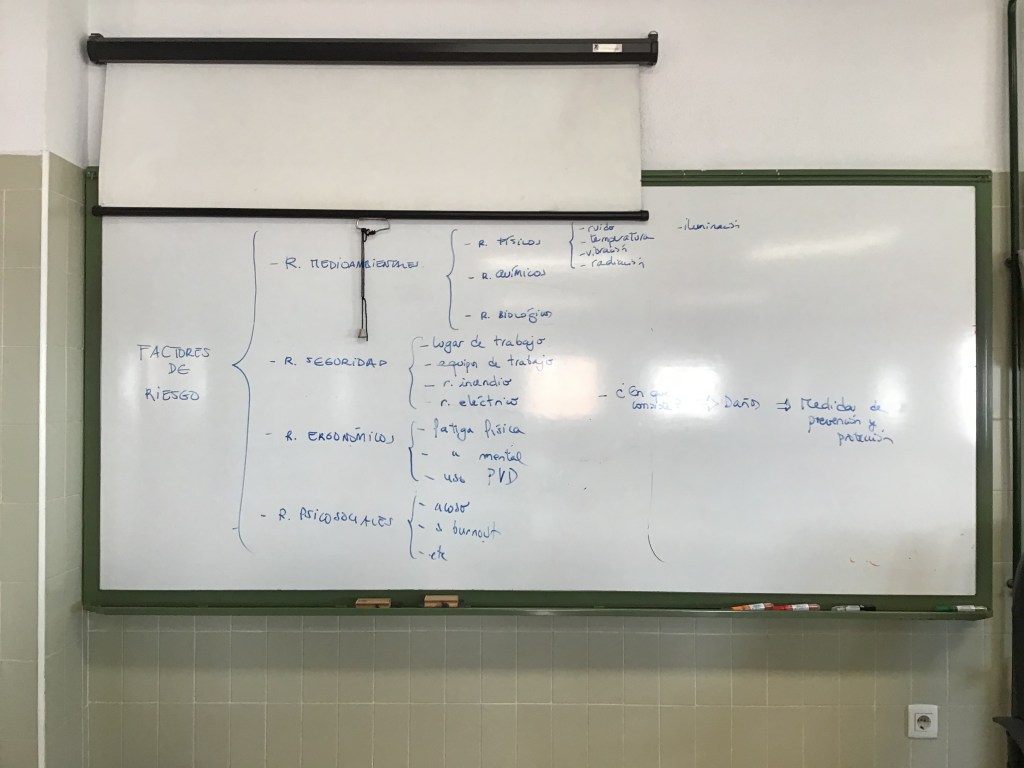 FACTORES
DE
RIESGO
- R. MEDIOAMBIENTALES
- R. FÍSICOS
- ruido
- temperatura
- vibración
- radiación
- iluminación
- R. QUÍMICOS
- R. BIOLÓGICOS
- R. SEGURIDAD
- lugar de trabajo
- equipos de trabajo
- r. incendio
- r. eléctrico
- R. ERGONÓMICOS
- fatiga física
- " mental
- uso PVD
- R. PSICOSOCIALES
- acoso
- s burnout
- etc
- ¿En que
consiste?
⇒ Daños ⇒ Medidas de
prevención y
protección